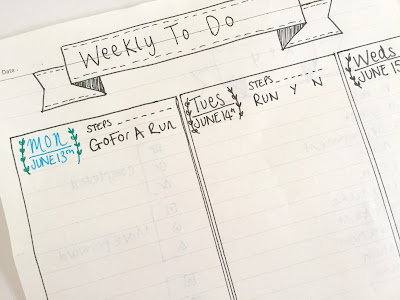 Date:
Weekly To Do
MON
JUNE 13TH
STEPS
GO FOR A RUN
Tues
JUNE 14th
STEPS
RUN Y N
Weds
JUNE 15